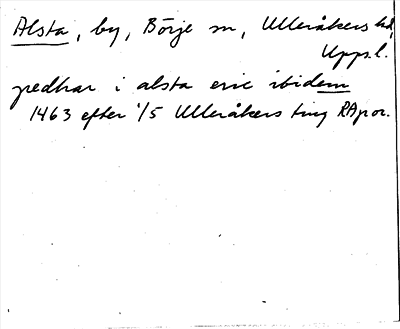 Alsta, by, Börje sn, Ulleråkers hd,
Upps.l.
pedhar i alsta eric ibidem
1463 efter 1/5 Ulleråkers ting RApor.